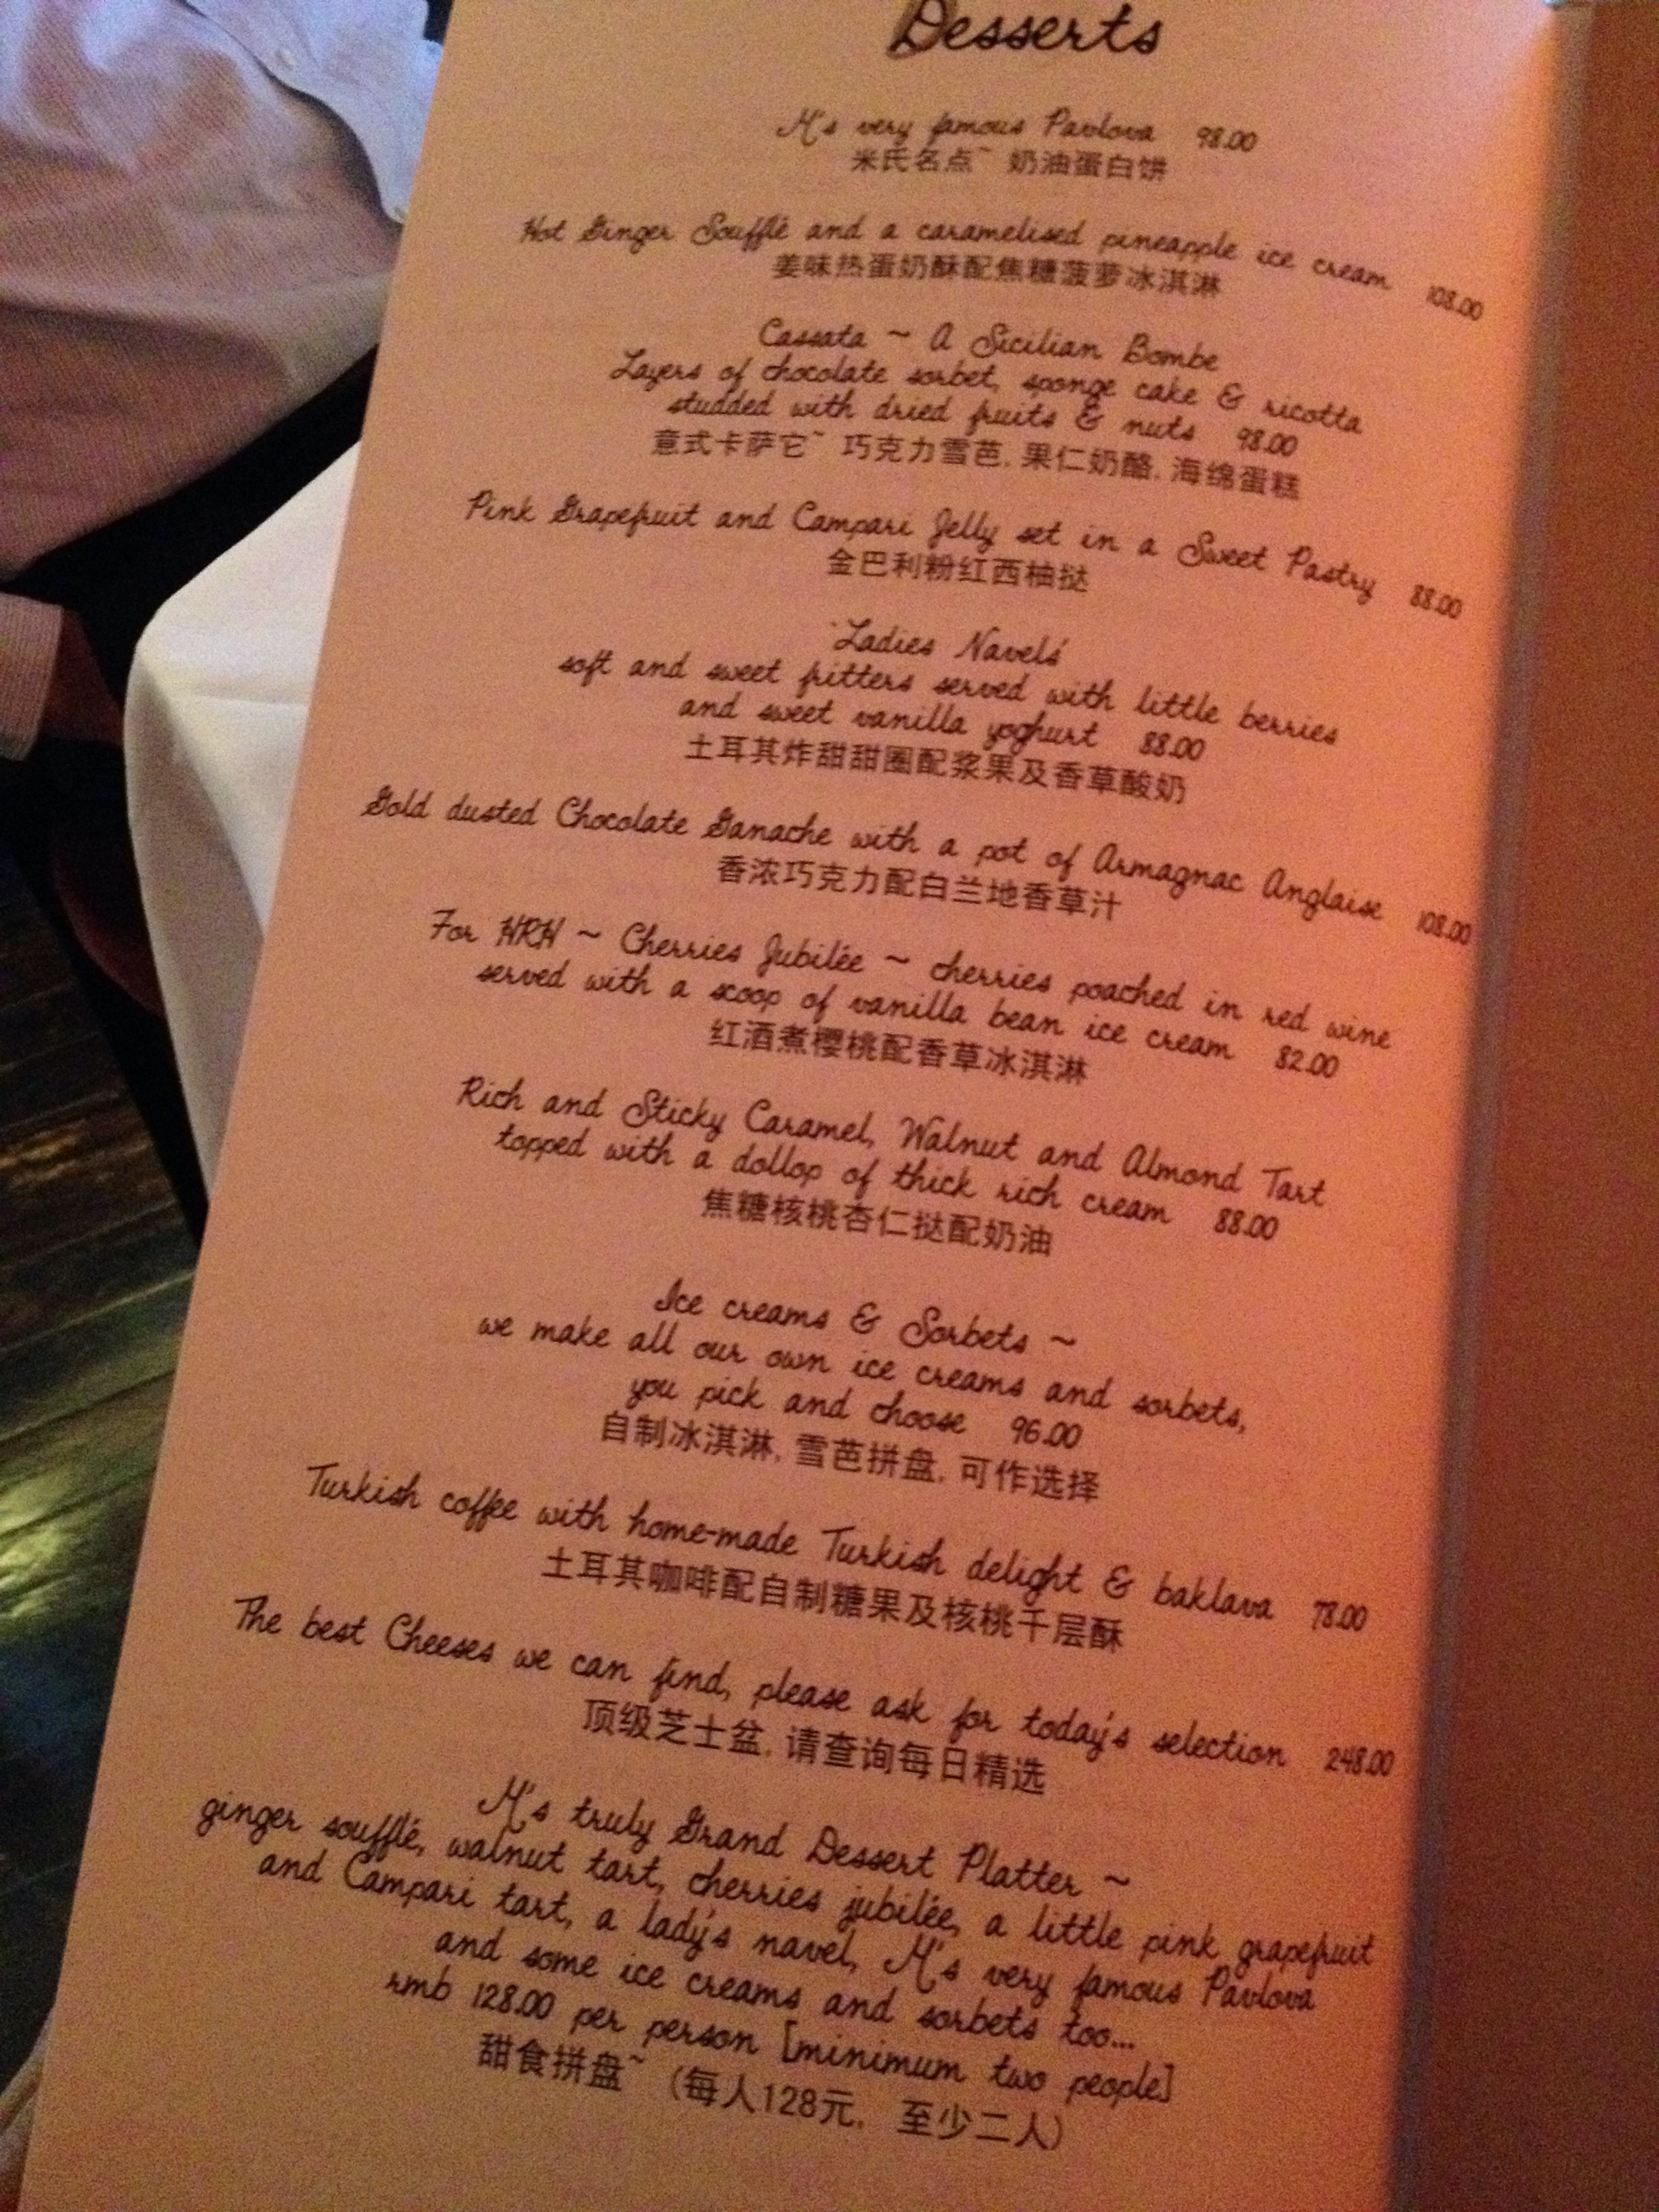 Desserts
M's very famous Pavlova 98.00
米氏名点~ 奶油蛋白饼
Hot Ginger Soufflé and a caramelised pineapple ice cream 108.00
姜味热蛋奶酥配焦糖菠萝冰淇淋
Cassata ~ A Sicilian Bombe
Layers of chocolate sorbet, sponge cake & ricotta
studded with dried fruits & nuts 98.00
意式卡萨它~ 巧克力雪芭, 果仁奶酪, 海绵蛋糕
Pink Grapefruit and Campari Jelly set in a Sweet Pastry 88.00
金巴利粉红西柚挞
'Ladies Navels'
soft and sweet fritters served with little berries
and sweet vanilla yoghurt 88.00
土耳其炸甜甜圈配浆果及香草酸奶
Gold dusted Chocolate Ganache with a pot of Armagnac Anglaise 108.00
香浓巧克力配白兰地香草汁
For HRH ~ Cherries Jubilée ~ cherries poached in red wine
served with a scoop of vanilla bean ice cream 82.00
红酒煮樱桃配香草冰淇淋
Rich and Sticky Caramel, Walnut and Almond Tart
topped with a dollop of thick rich cream 88.00
焦糖核桃杏仁挞配奶油
Ice creams & Sorbets ~
we make all our own ice creams and sorbets,
you pick and choose 96.00
自制冰淇淋, 雪芭拼盘, 可作选择
Turkish coffee with home-made Turkish delight & baklava 78.00
土耳其咖啡配自制糖果及核桃千层酥
The best Cheeses we can find, please ask for today's selection 248.00
顶级芝士盆, 请查询每日精选
M's truly Grand Dessert Platter ~
ginger soufflé, walnut tart, cherries jubilée, a little pink grapefruit
and Campari tart, a lady's navel, M's very famous Pavlova
and some ice creams and sorbets too...
rmb 128.00 per person [minimum two people]
甜食拼盘~ (每人128元, 至少二人)